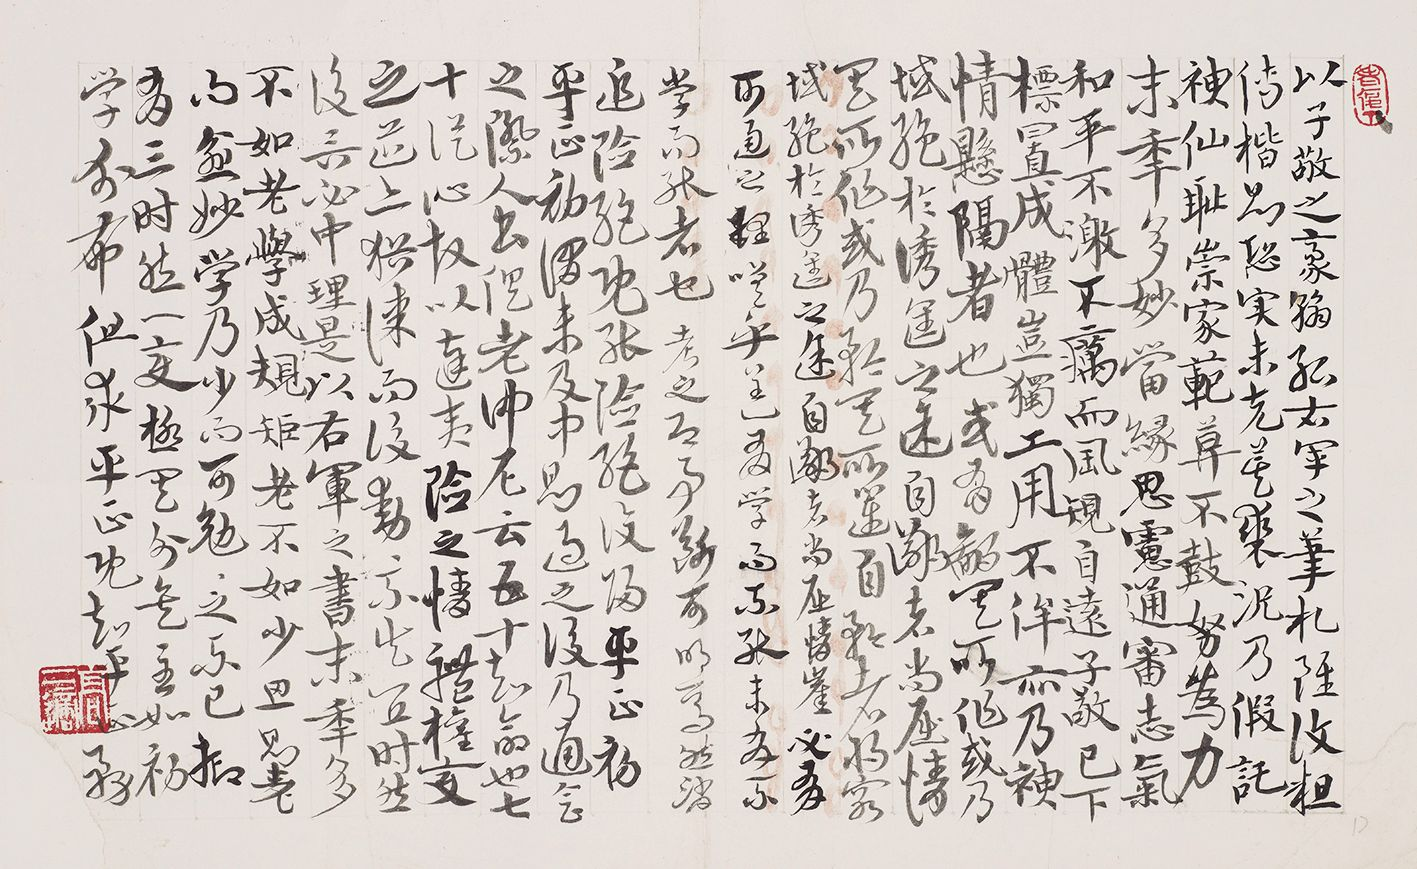 以子敬之豪翰紹右军之筆札雖復粗
传楷則恐实未克箕裘況乃假託
神仙耻崇家範莫不鼓努為力
末年多妙當緣思慮通審志氣
和平不激不厲而風規自遠子敬已下
標置成體豈獨工用不侔亦乃神
情懸隔者也或有鄙其所作或乃
域絕於誘進之途自鄙者尚屈情
其所作或乃矜其所運自矜者将窮
域絕於诱進之途自鄙者尚屈情崖必有
可通之理嗟乎盖有学而不能未有不
學而能者也考之即事斷可明焉然消
追险絕既能险絕復歸平正初
平正初謂未及中則過之後乃通会
之際人书俱老仲尼云五十知命也七
十從心故以達夷險之情體權變
之道亦猶谋而後動不失宜时然
後言必中理是以右軍之書末年多
不如老學成規矩老不如少思則老
而愈妙学乃少而可勉之不已抑
有三时然一变極其分矣至如初
学分布但求平正既知平正務